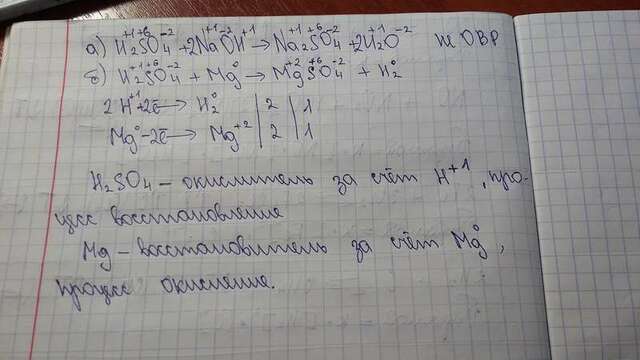 а) H₂⁺¹S⁺⁶O₄⁻² + 2Na⁺¹O⁻²H⁺¹ → Na₂⁺¹S⁺⁶O₄⁻² + 2H₂⁺¹O⁻² не ОВР
б) H₂⁺¹S⁺⁶O₄⁻² + Mg⁰ → Mg⁺²S⁺⁶O₄⁻² + H₂⁰
2H⁺¹+2ē → H₂⁰ | 2 | 1
Mg⁰-2ē → Mg⁺² | 2 | 1
H₂SO₄ – окислитель за счёт H⁺¹, про-
цесс восстановление
Mg – восстановитель за счёт Mg⁰,
процесс окисление.